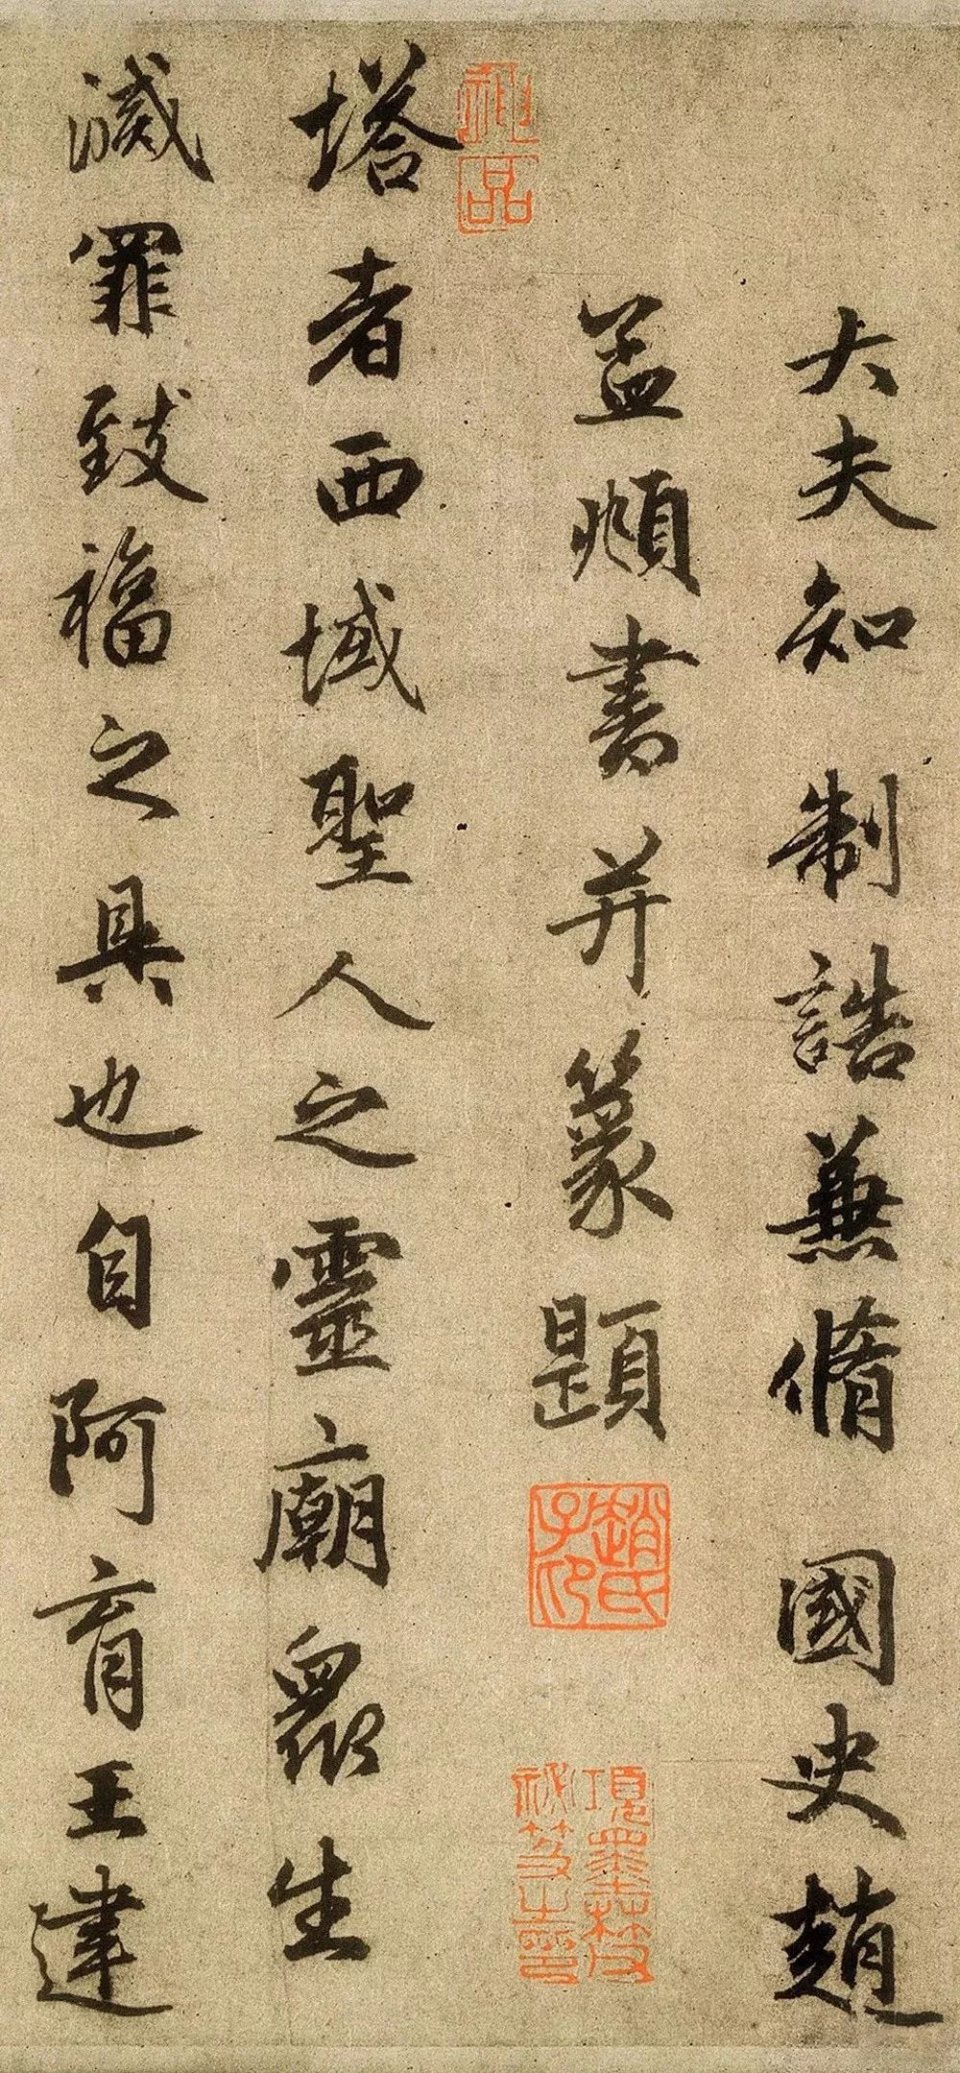 大夫知制誥兼脩國史趙
孟頫書并篆題
趙氏子昂
項墨林父祕笈之印
神品
塔者西域聖人之靈廟眾生
滅罪致福之具也自阿育王建